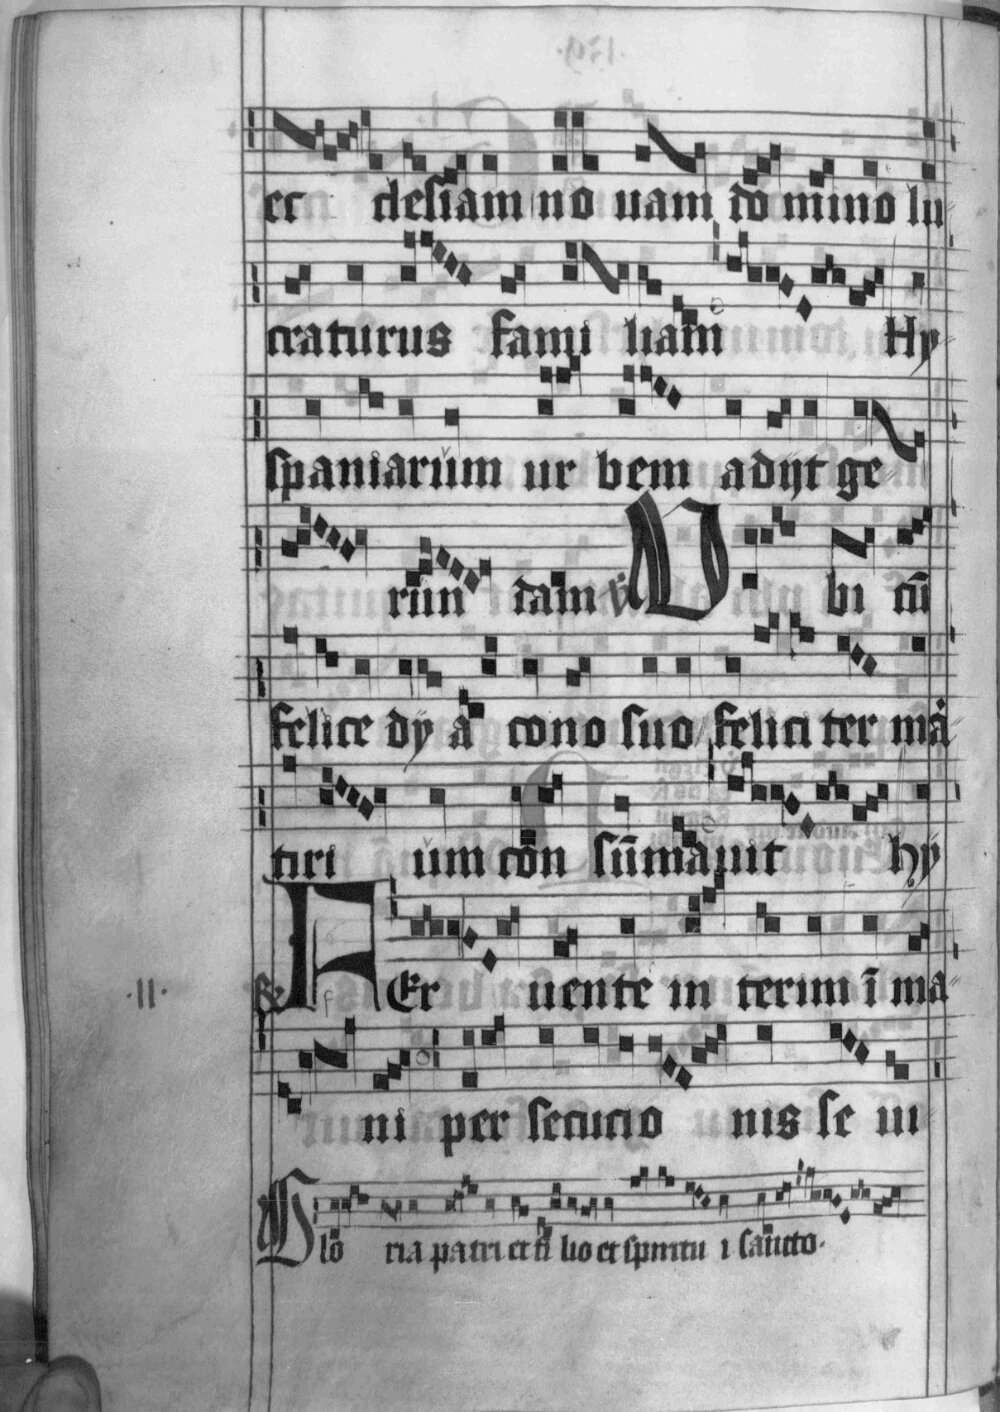 ec clesiam no uam do mino lu
craturus fami liam Hy
spaniarum ur bem adijt ge
run dam ℣ Ubi cū
felice dy a cono suo felici ter mar
tiri um con sūmauit hy
℟ FEr uente in terim ī ma
·II·
ni per secucio nis se ui
Glo ria patri et fi lio et spiritu i sancto.